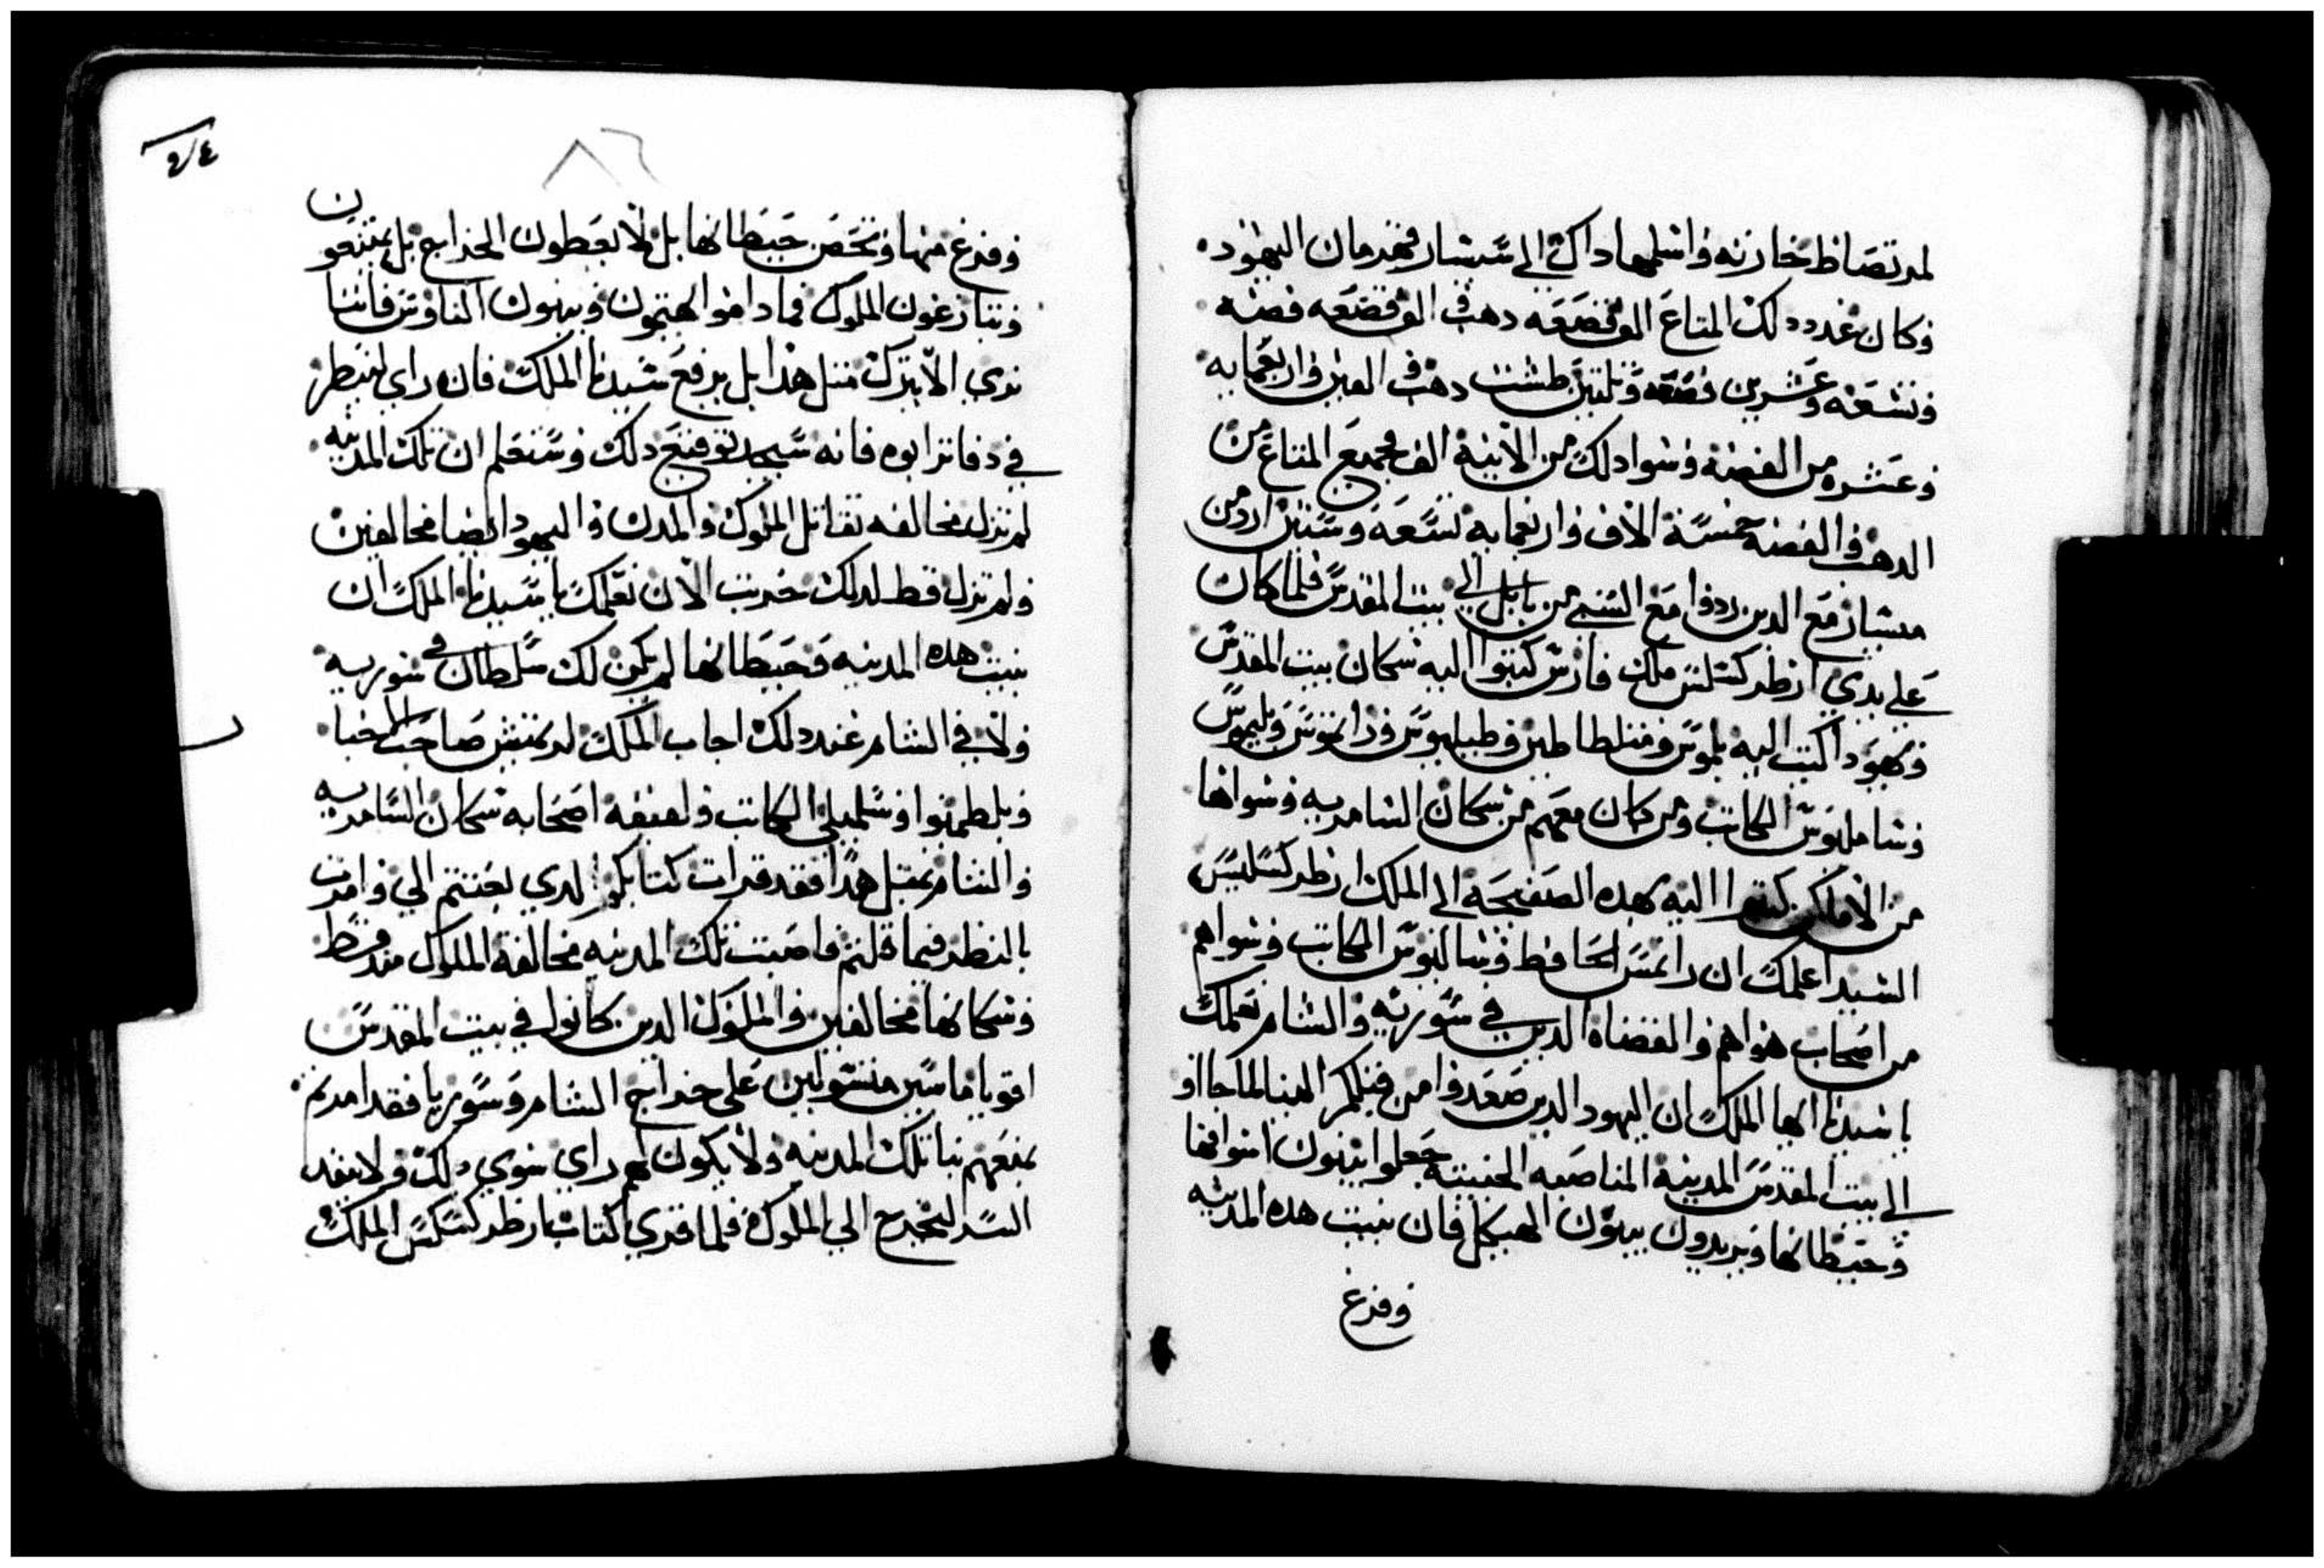 لمرتصاظ خازنه واسلمها داك الي شبشار قهرمان اليهود
وكان عدد دلك المتاع الف قصعه دهب الف قصعه فضه
وتسعه وعشرين فضه وثلثين طشت دهب الفين واربعمايه
وعشره من الفضه وسوا دلك من الانيه الف فجميع المتاع من
الدهب والفضه خمسة الاف واربعمايه تسعة وستين اردمن
مشبار مع الدين ردوا مع السبي من بابل الي بيت المقدس فلما كان
علي يدي ارطركسلس ملك فارس كتبوا اليه سكان بيت المقدس
ويهودا كتب اليه بلموس ومتلطاطين وطبيليوس ورايموس وبليموس
وشامليوس الكاتب ومن كان معهم من سكان السامريه وسواها
من الاماكن كتبوا اليه بهده الصفيحة الي الملك ارطركسلسس
السيد اعلمك ان رايمس الحافظ وشاليوس الكاتب وسواهم
من اصحاب هواهم والقضاة الدين في سوريه والشام نعلمك
يا سيدنا ايها الملك ان اليهود الدين صعدوا من قبلكم الينا لما جااو
الي بيت المقدس المدينة المناصبه الخبيثة جعلوا يبنون اسواقها
وحيطانها ويريدون يبنون الهيكل فان بنيت هده المدينه
وفرغ
وفرغ منها وتحصن حيطانها بل لا يعطون الخراج بل يمتنعون
وينازعون الملوك فما داموا يهتمون ويبنون الناوس فاننا
نري الا يترك مثل هدا بل يرفع سيدنا الملك فان راي لينظر
في دفاتر ابوه فانه سيجد توقيع دلك وستعلم ان تلك المدينه
لم تزل مخالفه تقاتل الملوك والمدن واليهود ايضا مخالفين
ولم تزل قط لدلك خربت الان نعلمك يا سيدنا الملك ان
بنيت هده المدينه وحيطانها لم يكن لك سلطان في سوريه
ولا في الشام عند دلك اجاب الملك لريمنيس صاحب الخبا
وبلطمنوا وسلميلي الكاتب ولفيفه اصحابه سكان السامريه
والشام بمثل هدا فقد قرات كتابكم الدي بعثتم الي وامرت
بالنظر فيما قلتم فاصبت تلك المدينه مخالفة الملوك مند قط
وسكانها مخالفين والملوك الدين كانوا في بيت المقدس
اقويا ماسين منشولين علي خراج الشام وسوريا فقد امرتم
بمنعهم بنا تلك المدينه ولا يكون لهم راي سوي دلك ولا ينفد
السر ليخرج الي الملوك فلما قري كتاب ارطركسلس الملك